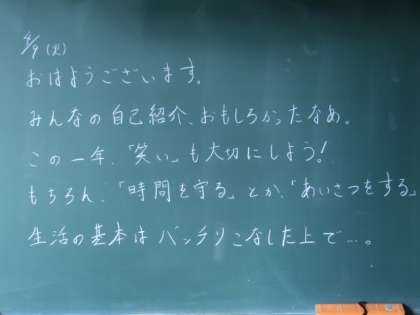 4/9(火)
おはようございます。
みんなの自己紹介、おもしろかったなぁ。
この一年、「笑い」も大切にしよう!
もちろん、「時間を守る」とか、「あいさつをする」
生活の基本はバッチリこなした上で…。